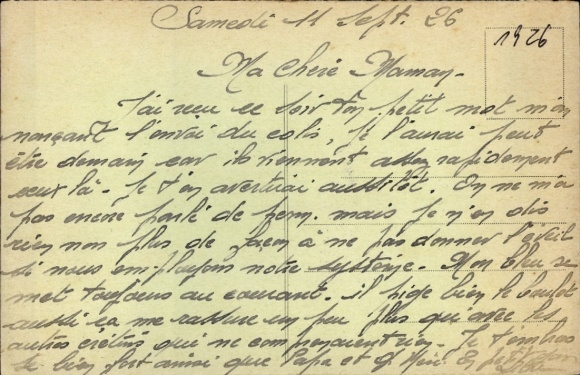 Samedi 11 Sept. 26
1926
Ma chère Maman.
J'ai reçu ce soir ton petit mot m'an
nonçant l'envoi du colis, je l'aurai peut
être demain car ils viennent assez rapidement
ceux là. Je t'en avertirai aussitôt. On ne m'a
pas encore parlé de mais je n'en dis
rien non plus de façon à ne pas donner l'éveil
si nous employons notre système. Mon bleu se
met toujours au courant. il pige bien le boulot
aussi ça me rassure un peu plus qu'avec les
autres crétins qui ne comprenaient rien. Je t'embras
se bien fort ainsi que Papa et